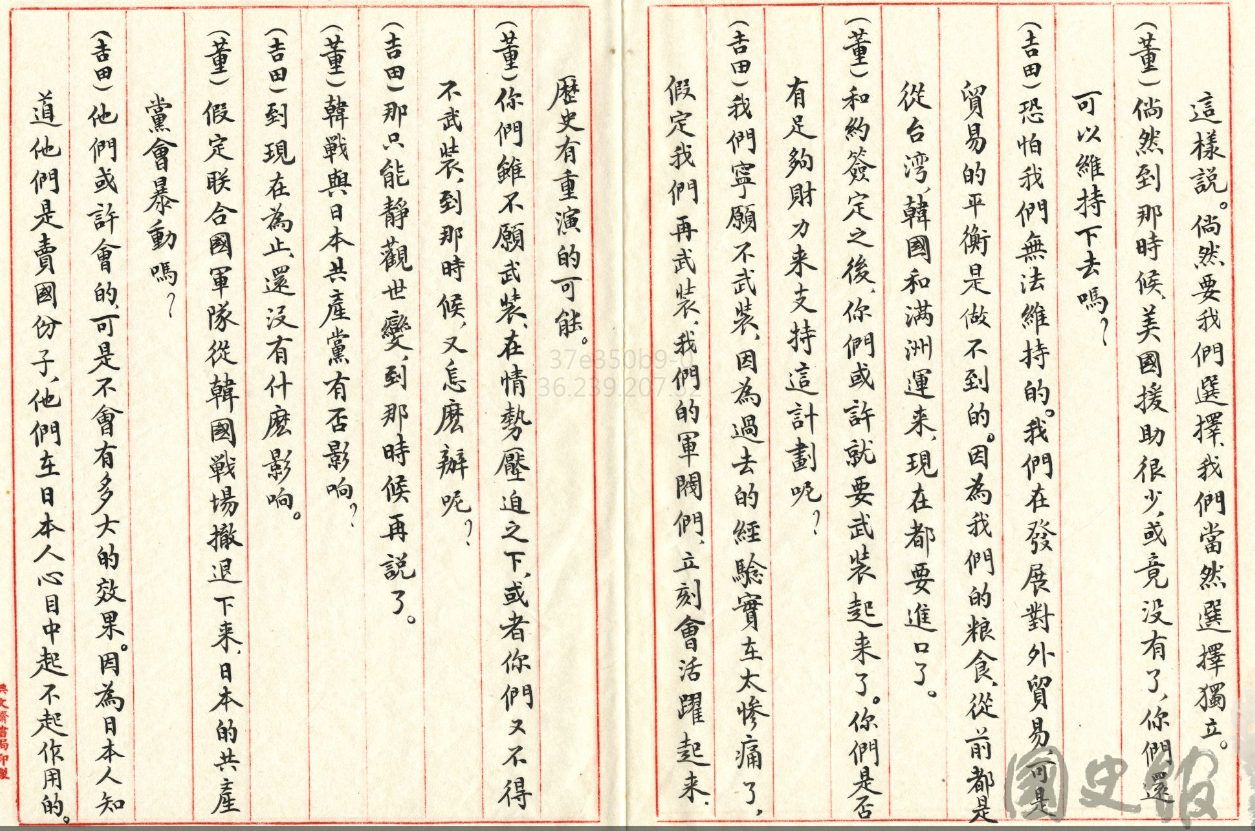 這樣説。倘然要我們選擇、我們當然選擇獨立。
(董)倘然到那時候、美國援助很少、或竟没有了、你們還
可以維持下去嗎？
(吉田)恐怕我們無法維持的。我們在發展對外貿易、可是
貿易的平衡是做不到的。因為我們的粮食、從前都是
從台湾、韓國和満洲運来、現在都要進口了。
(董)和約簽定之後、你們或許就要武裝起来了。你們是否
有足夠財力来支持這計劃呢？
(吉田)我們寧願不武裝、因為過去的經驗實在太慘痛了、
假定我們再武裝、我們的軍閥們、立刻會活躍起来、
歷史有重演的可能。
(董)你們雖不願武裝、在情勢壓迫之下、或者你們又不得
不武裝、到那時候、又怎麽辦呢？
(吉田)那只能靜觀世變、到那時候再説了。
(董)韓戰與日本共產黨有否影响？
(吉田)到現在為止、還没有什麽影响。
(董)假定联合國軍隊從韓國戰场撤退下来、日本的共產
黨會暴動嗎？
(吉田)他們或許會的、可是不會有多大的效果。因為日本人知
道他們是賣國份子、他們在日本人心目中起不起作用的。
國史報